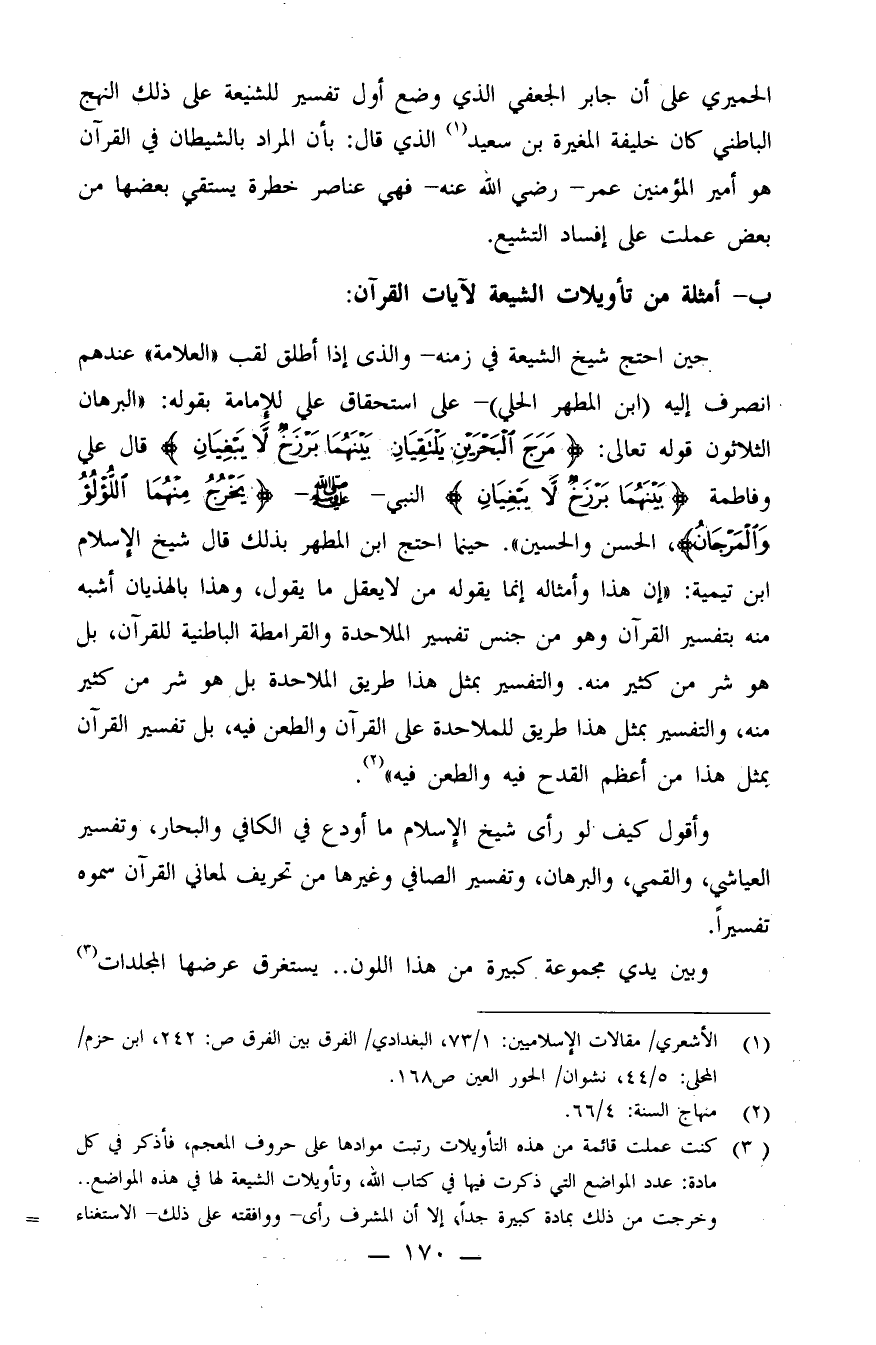 الحميري على أن جابر الجعفي الذي وضع أول تفسير للشيعة على ذلك النهج
الباطني كان خليفة المغيرة بن سعيد(١) الذي قال: بأن المراد بالشيطان في القرآن
هو أمير المؤمنين عمر– رضي الله عنه– فهي عناصر خطرة يستقي بعضها من
بعض عملت على إفساد التشيع.
ب– أمثلة من تأويلات الشيعة لآيات القرآن:
حين احتج شيخ الشيعة في زمنه– والذى إذا أطلق لقب «العلامة» عندهم
انصرف إليه (ابن المطهر الحلي)– على استحقاق علي للإمامة بقوله: «البرهان
الثلاثون قوله تعالى: ﴿ مَرَجَ ٱلْبَحْرَيْنِ يَلْتَقِيَانِ بَيْنَهُمَا بَرْزَخٌ لَّا يَبْغِيَانِ ﴾ قال علي
وفاطمة ﴿ بَيْنَهُمَا بَرْزَخٌ لَّا يَبْغِيَانِ ﴾ النبي– ﷺ– ﴿ يَخْرُجُ مِنْهُمَا ٱللُّؤْلُؤُ
وَٱلْمَرْجَانُ﴾، الحسن والحسين». حينما احتج ابن المطهر بذلك قال شيخ الإسلام
ابن تيمية: «إن هذا وأمثاله إنما يقوله من لايعقل ما يقول، وهذا بالهذيان أشبه
منه بتفسير القرآن وهو من جنس تفسير الملاحدة والقرامطة الباطنية للقرآن، بل
هو شر من كثير منه. والتفسير بمثل هذا طريق الملاحدة بل هو شر من كثير
منه، والتفسير بمثل هذا طريق للملاحدة على القرآن والطعن فيه، بل تفسير القرآن
بمثل هذا من أعظم القدح فيه والطعن فيه»(٢).
وأقول كيف لو رأى شيخ الإسلام ما أودع في الكافي والبحار، وتفسير
العياشي، والقمي، والبرهان، وتفسير الصافي وغيرها من تحريف لمعاني القرآن سموه
تفسيراً.
وبين يدي مجموعة كبيرة من هذا اللون.. يستغرق عرضها المجلدات(٣)
(١) الأشعري/ مقالات الإسلاميين: ٧٣/١، البغدادي/ الفرق بين الفرق ص: ٢٤٢، ابن حزم/
المحلى: ٤٤/٥، نشوان/ الحور العين ص١٦٨.
(٢) منهاج السنة: ٦٦/٤.
(٣) كنت عملت قائمة من هذه التأويلات رتبت موادها على حروف المعجم، فأذكر في كل
مادة: عدد المواضع التي ذكرت فيها في كتاب الله، وتأويلات الشيعة لها في هذه المواضع..
وخرجت من ذلك بمادة كبيرة جداً، إلا أن المشرف رأى– ووافقته على ذلك– الاستغناء =
— ١٧٠ —